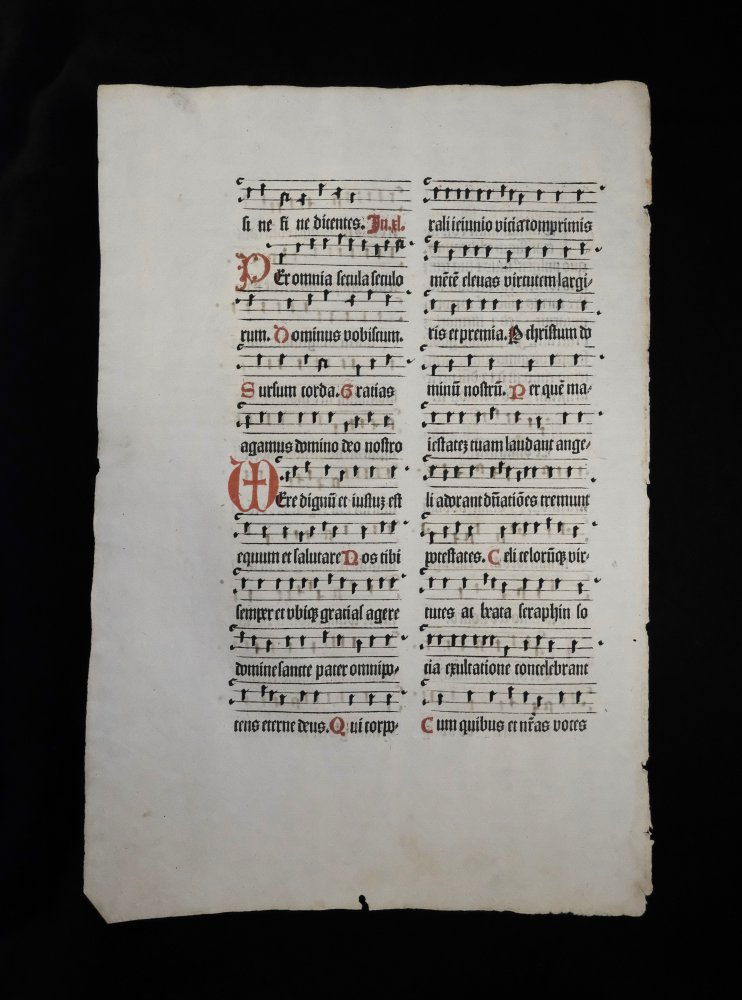 si ne fi ne dicentes. In.xl.
PEr omnia secula seculo
rum. Dominus vobiscum.
Sursum corda. Gratias
agamus domino deo nostro
VEre dignū et iustuꝫ est
equum et salutare Nos tibi
semper et vbiqꝫ gratias agere
domine sancte pater omnipo-
tens eterne deus. Qui corpo-
rali ieiunio vicia comprimis
mētē eleuas virtutem largi-
ris et premia. P christum do
minū nostrū. Per quē ma-
iestateꝫ tuam laudant ange-
li adorant dn̄atiōes tremunt
potestates. Celi celorūqꝫ vir-
tutes ac beata seraphin so
cia exultatione concelebrant
Cum quibus et nr̄as voces